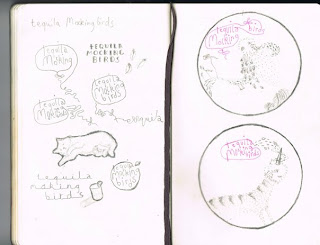 tequila Mockingbirds
tequila
Mocking
TEQUILA
MOCKING
BIRDS
tequila
Mocking
birds
tequila
Mocking
tequila
tequila
mocking
birds
tequila
Mocking
birds
tequila birds
Mocking
tequila
Mockingbirds